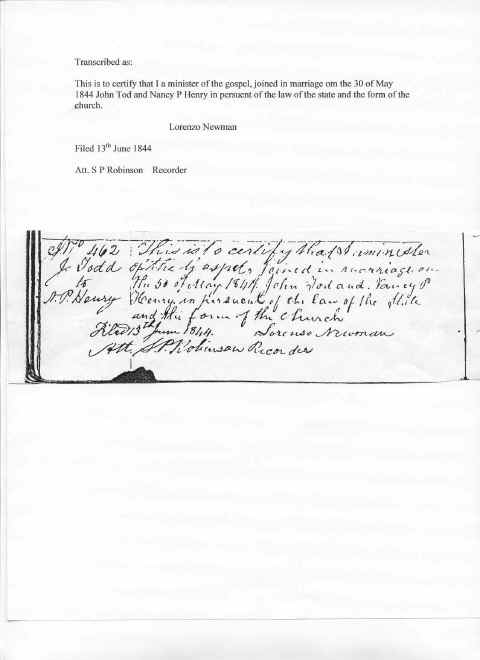 Transcribed as:
This is to certify that I a minister of the gospel, joined in marriage om the 30 of May
1844 John Tod and Nancy P Henry in persuent of the law of the state and the form of the
church.
Lorenzo Newman
Filed 13th June 1844
Att. S P Robinson Recorder
No 462 This is to certify that I. minister
J. Todd of the gospel, joined in marriage on
to the 30 of May 1844 John Tod and Nancy P
N. P Henry Henry in persuent of the law of the State
and the form of the Church
Filed 13th June 1844. Lorenzo Newman
Att. S. P. Robinson Recorder